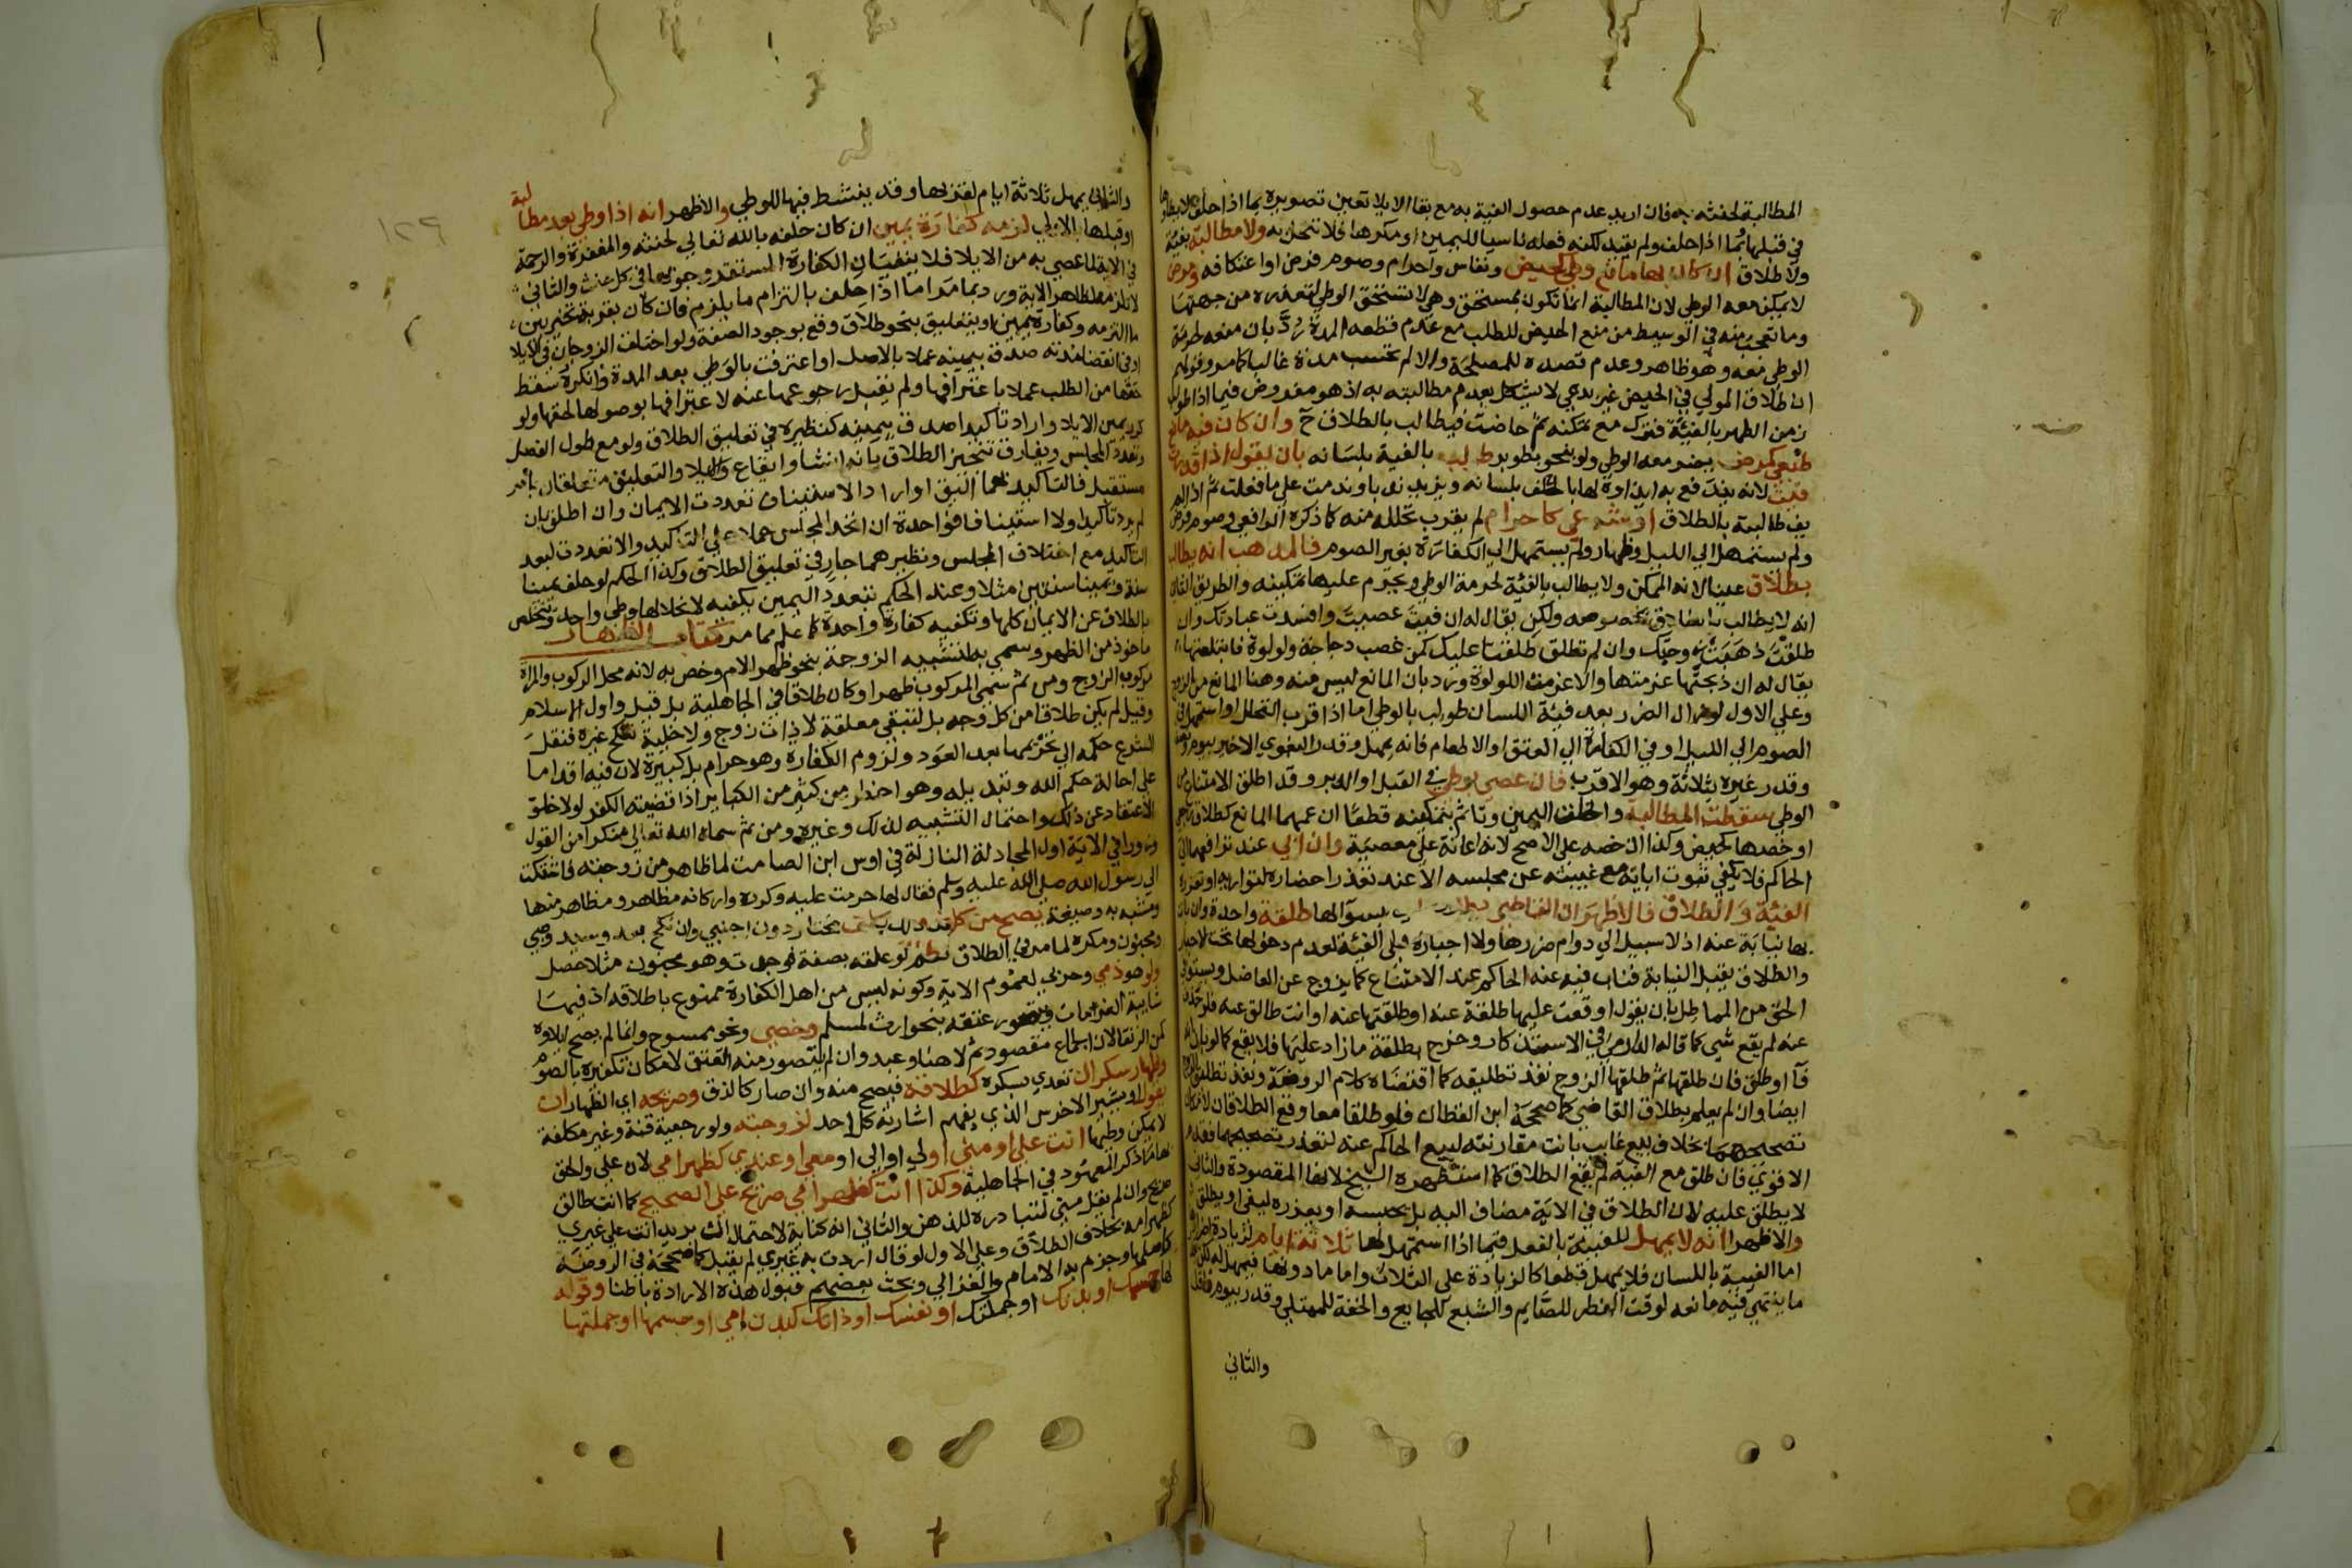 المطالبة لحنثه به فان اريد عدم حصول الفية به مع بقا الايلا تعين تصويره بما اذا حلف لا يطاوها
في قبلها ثما اذا حلف ولم يقيد لكنه فعله ناسيا لليمين او مكرها فلا تنحل به ولا مطالبة بفية
ولا طلاق ان كان بها مانع وطي كحيض ونفاس واحرام وصوم فرض او اعتكافه ومرض
لا يمكن معه الوطي لان المطالبة انما تكون بمستحق وهي لا تستحق الوطي لتعذره من جهتها
وما تعجب منه في الوسيط من منع الحيض للطلب مع عدم قطعه المدة رد بان منعه لحرمة
الوطي معه وهو ظاهر وعدم قصده للمصلحة والا لم تحتسب مدة غالبا كما مر وقولهم
ان طلاق المولي في الحيض غير بدعي لا يشكل بعدم مطالبته به اذ هو مفروض فيما اذا طولب
زمن الطهر بالفيئة فترك مع تمكنه ثم حاضت فيطالب بالطلاق ح وان كان فيه مانع
طبعي كمرض يضر معه الوطي ولو بنحو بطو برء طولب بالفية بلسانه بان يقول اذا قدرت
فيت لانه يندفع به ايذاوه لها بالحلف بلسانه ويزيد ندبا وندمت على ما فعلت ثم اذا لم
يف طالبته بالطلاق او شرعي كاحرام لم يقرب تحلله منه كما ذكره الرافعي وصوم فرض
ولم يستمهل الي الليل وظهار ولم يستمهل الي الكفارة بغير الصوم فالمذهب انه يطالب
بطلاق عينا لانه الممكن ولا يطالب بالفئية لحرمة الوطي ويحرم عليها تمكينه والطريق الثاني
انه لا يطالب بالطلاق بخصوصه ولكن يقال له ان فيت عصيت وافسدت عبادتك وان
طلقت ذهبت زوجتك وان لم تطلق طلقنا عليك كمن غصب دجاجة ولولوة فابتلعتها
يقال له ان ذبحتها غرمتها والا غرمت اللولوة ورد بان المانع ليس منه وهنا المانع من الزوج
وعلي الاول لو زال الضرر بعد فيئة اللسان طولب بالوطي اما اذا قرب التحلل او استمهل في
الصوم الي الليل او في الكفارة الي العتق او الاطعام فانه يمهل وقدر البغوي الاخير بيوم ونصف
وقدر غيره بثلاثة وهو الاقرب فان عصي بوطي في القبل او الدبر وقد اطلق الامتناع من
الوطي سقطت المطالبة وانحلت اليمين وتاثم بتمكينه قطعا ان عمهما المانع كطلاق رجعي
او خصها كحيض وكذا ان خصه علي الاصح لانه اعانة علي معصية وان ابي عند ترافعهما الي
الحاكم فلا يكفي ثبوت ابايه مع غيبته عن مجلسه الا عند تعذر احضاره لتواريه او تعززه
الفيئة والطلاق فالاظهر ان القاضي يطلق عليه بسوالها طلقة واحدة وان بانت
بها نيابة عنه اذ لا سبيل الي دوام ضررها ولا اجباره علي الفيئة لعدم دخولها تحت الاجبار
والطلاق يقبل النيابة فناب فيه عنه الحاكم عند الامتناع كما يزوج عن العاضل ويستوفي
الحق من المماطل بان يقول اوقعت عليها طلقة عنه او طلقتها عنه او انت طالق عنه فلو حذف
عنه لم يقع شي كما قاله الدارمي في الاستذكار وخرج بطلقة ما زاد عليها فلا يقع كما لو بان انه
فآ او طلق فان طلقها ثم طلقها الزوج نفذ تطليقه كما اقتضاه كلام الروضة ونفذ تطليق الزوج
ايضا وان لم يعلم بطلاق القاضي كما صححه ابن القطان فلو طلقا معا وقع الطلاقان لامكان
تصحيحهما بخلاف بيع غايب بانت مقارنته لبيع الحاكم عنه لتعذر تصحيحهما فقدم
الاقوي فان طلق مع الفية لم يقع الطلاق كما استظهره الشيخ لانها المقصودة والثاني
لا يطلق عليه لان الطلاق في الاية مضاف اليه بل يحبسه او يعزره ليفي او يطلق
والاظهر انه لا يمهل للفيئة بالفعل فيما اذا استمهل لها ثلاثة ايام لزيادة اضرار
اما الفيية باللسان فلا يمهل قطعا كالزيادة على الثلاث واما ما دونها فيمهل له لكن
ما ينتهي فيه مانعه لوقت الفطر للصايم والشبع للجايع والخفة للممتلي وقدر بيوم فاقل
والثاني
والثاني يمهل ثلاثة ايام لقربها وقد ينتشط فيها للوطي والاظهر انه اذا وطي بعد مطالبة
او قبلها بالاولي لزمه كفارة يمين ان كان حلفه بالله تعالي لحنثه والمغفرة والرحمة
في الاية لما عصي به من الايلا فلا ينفيان الكفارة المستقر وجوبها في كل حنث والثاني
لا تلزمه لظاهر الاية ورد بما مر اما اذا حلف بالتزام ما يلزم فان كان بقربة تخير بين
ما التزمه وكفارة يمين او بتعليق بنحو طلاق وقع بوجود الصفة ولو اختلف الزوجان في الايلا
او في انقضا مدته صدق بيمينه عملا بالاصل او اعترفت بالوطي بعد المدة وانكره سقط
حقها من الطلب عملا باعترافها ولم يقبل رجوعها عنه لاعترافها بوصولها لحقها ولو
كرر يمين الايلا واراد تاكيدا صدق بيمينه كنظيره في تعليق الطلاق ولو مع طول الفصل
وتعدد المجلس ويفارق تنجيز الطلاق بانه انشا وايقاع والايلا والتعليق متعلقان بامر
مستقبل فالتاكيد بهما اليق او اراد الاستيناف تعددت الايمان وان اطلق بان
لم يرد تاكيدا ولا استينافا فواحدة ان اتحد المجلس حملا علي التاكيد والا تعددت لبعد
التاكيد مع اختلاف المجلس ونظيرهما جار في تعليق الطلاق وكذا الحكم لو حلف يمينا
سنة ويمينا سنتين مثلا وعند الحكم بتعدد اليمين يكفيه لانحلالها وطي واحد ويتخلص
بالطلاق عن الايمان كلها وتكفيه كفارة واحدة كما علم مما مر كتاب الظهار
ماخوذ من الظهر وسمي به لتشبيه الزوجة بنحو ظهر الام وخص به لانه محل الركوب والمراة
مركوب الزوج ومن ثم سمي المركوب ظهرا وكان طلاقا في الجاهلية بل قيل واول الاسلام
وقيل لم يكن طلاقا من كل وجه بل لتبقي معلقة لا ذات زوج ولا خلية تنكح غيره فنقل
الشرع حكمه الي تحريمها بعد العود ولزوم الكفارة وهو حرام بل كبيرة لان فيه اقداما
علي احالة حكم الله وتبديله وهو اخطر من كثير من الكباير اذ قضيته الكفر لولا خلو
الاعتقاد عن ذلك واحتمال التشبيه لذلك وغيره ومن ثم سماه الله تعالي منكرا من القول
وزورا في الاية اول المجادلة النازلة في اوس ابن الصامت لما ظاهر من زوجته فاشتكت
الي رسول الله صلي الله عليه وسلم فقال لها حرمت عليه وكرره واركانه مظاهر ومظاهر منها
ومشبه به وصيغة يصح من كل زوج مكلف مختار دون اجنبي وان نكح بعد وسيد وصبي
ومجنون ومكره لما مر في الطلاق نعم لو علقه بصفة فوجدت وهو مجنون مثلا حصل
ولو هو ذمي وحربي لعموم الاية وكونه ليس من اهل الكفارة ممنوع باطلاقه اذ فيها
شايبة الغرامات ويتصور عتقه بنحو ارث لمسلم وخصي ونحو ممسوح وانما لم يصح ايلاوه
كمن الرتقا لان الجماع مقصود ثم لا هنا وعبد وان لم يتصور منه العتق لامكان تكفيره بالصوم
وظهار سكران تعدي بسكره كطلاقه فيصح منه وان صار كالزق وصريحه اي الظهار ان
يقول او يشير الاخرس الذي يفهم اشارته كل احد لزوجته ولو رجعية قنة وغير مكلفة
لا يمكن وطيها انت علي او مني او لي او الي او معي او عندي كظهر امي لان علي والحق
بها ما ذكر المعهود في الجاهلية وكذا انت كظهر امي صريح علي الصحيح كما انت طالق
صريح وان لم يقل مني لتبادره للذهن والثاني انه كناية لاحتمال انه يريد انت علي غيري
كظهر امه بخلاف الطلاق وعلي الاول لو قال اردت به غيري لم يقبل كما صححه في الروضة
كاصلها وجزم به الامام والغزالي وبحث بعضهم قبول هذه الارادة باطنا وقوله
لها جسمك او بدنك او جملتك او نفسك او ذاتك كبدن امي او جسمها او جملتها
١٢٩